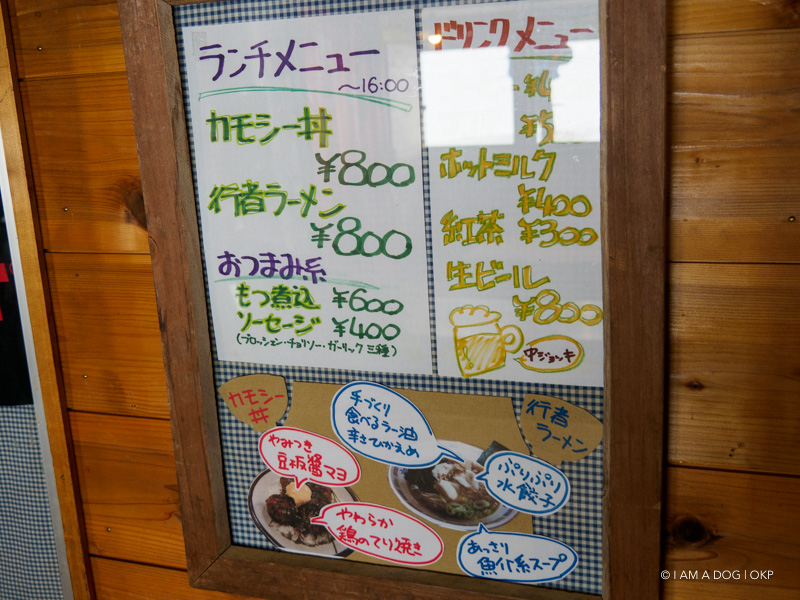 ランチメニュー
～16:00
カモシー丼
¥800
行者ラーメン
¥800
おつまみ系
もつ煮込 ¥600
ソーセージ ¥400
(ブロッシェン・チョリソー・ガーリック 三種)
ドリンクメニュー
ホットミルク
¥400
紅茶 ¥300
生ビール
¥800
中ジョッキ
カモシー
丼
手づくり
食べるラー油
辛さひかえめ
行者
ラーメン
やみつき
豆板醤マヨ
ぷりぷり
水餃子
やわらか
鶏のてり焼き
あっさり
魚介系スープ
© I AM A DOG | OKP